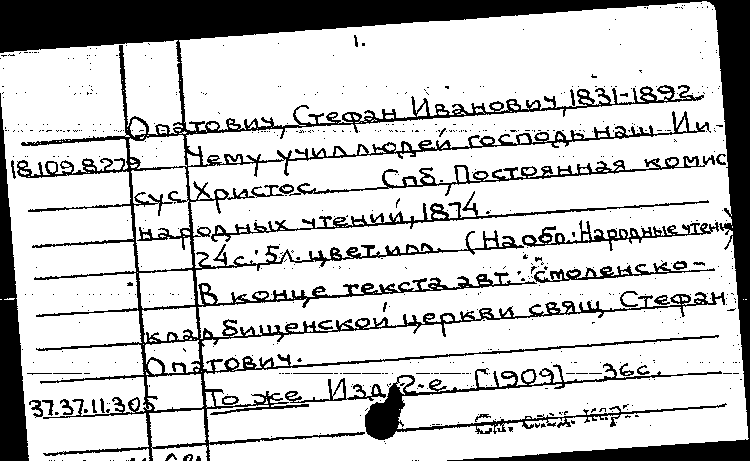 1.
Опатович, Стефан Иванович, 1831-1892
18.109.8.279 Чему учил людей господь наш Ии-
сус Христос. Спб., Постоянная комис
народных чтений, 1874.
24с.; 5л. цвет. илл. (На обл.: Народные чтения)
В конце текста авт.: Смоленско-
кладбищенской церкви свящ. Стефан
Опатович.
37.37.11.305 То же. Изд. 2-е. [1909]. 36с.
См. след. карт.